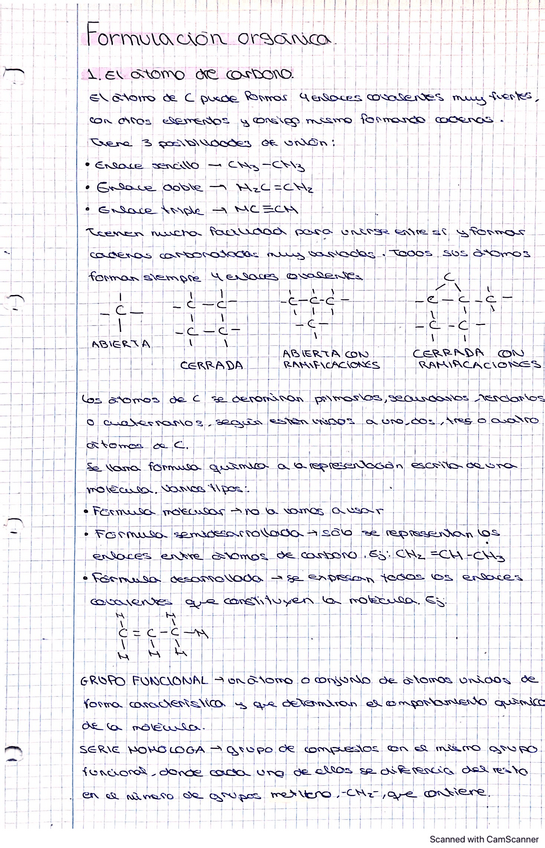 Formulación orgánica.
1. El átomo de carbono.
El átomo de C puede formar 4 enlaces covalentes muy fuertes,
con otros elementos y consigo mismo formando cadenas.
Tiene 3 posibilidades de unión:
• Enlace sencillo → CH₃-CH₃
• Enlace doble → H₂C=CH₂
• Enlace triple → HC≡CH
Tienen mucha facilidad para unirse entre sí y formar
cadenas carbonatadas muy variadas. Todos sus átomos
forman siempre 4 enlaces covalentes.
ABIERTA
CERRADA
ABIERTA CON
RAMIFICACIONES
CERRADA CON
RAMIFICACIONES
Los átomos de C se denominan primarios, secundarios, terciarios
o cuaternarios, según estén unidos a uno, dos, tres o cuatro
átomos de C.
Se llama fórmula química a la representación escrita de una
molécula. Varios tipos:
• Fórmula molecular → no la vamos a usar
• Fórmula semidesarrollada → sólo se representan los
enlaces entre átomos de carbono. Ej: CH₂=CH-CH₃
• Fórmula desarrollada → se expresan todos los enlaces
covalentes que constituyen la molécula. Ej:
H H
C = C - C - H
H H H
GRUPO FUNCIONAL → un átomo o conjunto de átomos unidos de
forma característica y que determinan el comportamiento químico
de la molécula.
SERIE HOMÓLOGA → grupo de compuestos con el mismo grupo
funcional, donde cada uno de ellos se diferencia del resto
en el número de grupos metileno, -CH₂-, que contiene.
Scanned with CamScanner